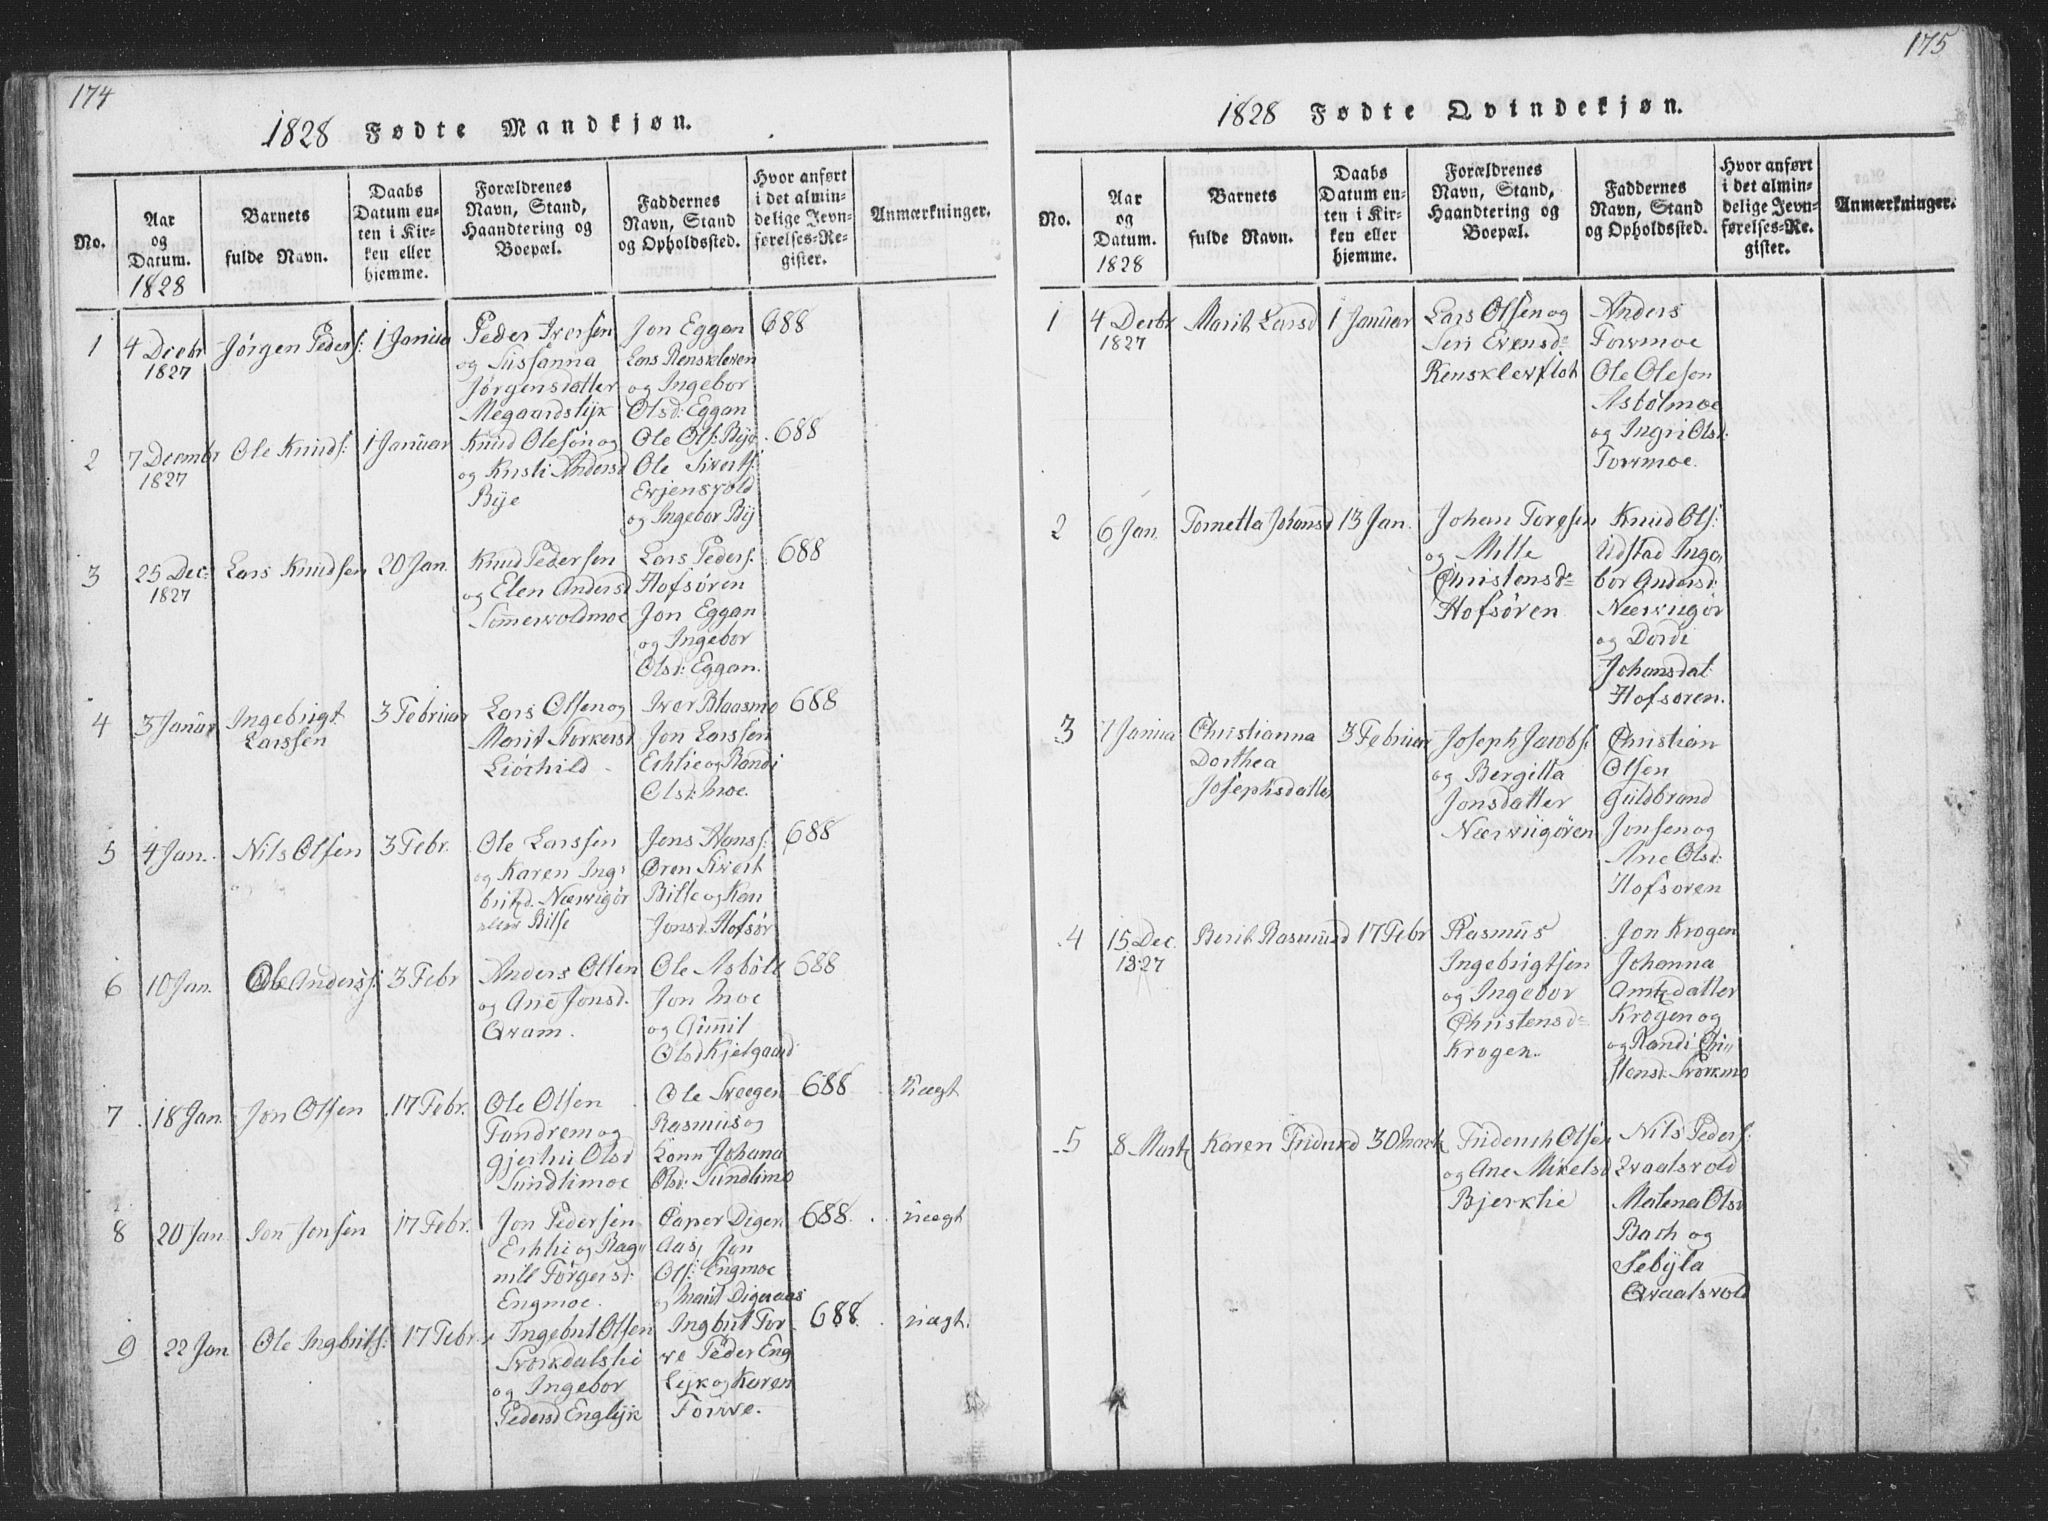 174
1828 Fødte Mandkjøn.
No.
Aar
og
Datum.
1828
Barnets
fulde Navn.
Daabs
Datum en-
ten i Kir-
ken eller
hjemme.
Forældrenes
Navn, Stand,
Haandtering og
Boepæl.
Faddernes
Navn, Stand
og Opholdssted.
Hvor anført
i det almin-
delige Jevn-
førelses-Re-
gister.
Anmærkninger.
1
4 Decbr
1827
Jørgen Peders:
1 Janua
Peder Iversen
og Sussanna
Jørgensdatter
Megaardslyk
Jon Eggan
Lars Renskleven
og Ingebor
Olsd: Eggan
688
2
7 Decmbr
1827
Ole Knuds:
1 Januar
Knud Olesøn og
og Kristi Andersd
Bye
Ole Ols: Bye
Ole Siverts:
Evjensvold
og Ingebor Bij
688
3
25 Dec:
1827
Lars Knudsen
20 Jan.
Knud Pedersen
og Elen Andersd
Sommervoldmoe
Lars Peders:
Hofsøren
Jon Eggan
og Ingebor
Olsd: Eggan.
688
4
3 Januar
Ingebrigt
Larssen
3 Februar
Lars Olsen og
Marit Storkersd
Liøskild
Iver Blaasmo
Jon Larssen
Eshlie og Randi
Olsd: Moe.
688
5
4 Jan.
Nils Olsen
3 Febr.
Ole Larssen
og Karen Ing-
britzd. Nærvigør
eller Bilse
Jens Hanss:
Øren Sivert
Bilse og Kari
Jonsd. Hofsør
688
6
10 Jan.
Ole Anderss:
3 Febr
Anders Olsen
og Ane Jonsd.
Qvam.
Ole Asbøll
Jon Moe
og Gunnil
Olsd Kjelgaard
688
7
18 Jan.
Jon Olsen
17 Febr.
Ole Olsen
Fandrem og
Gjertru Olsd
Sundlimoe
Ole Sveegen
Rasmus og
Lønn Johana
Olsd: Sundlimo
688
uægt
8
20 Jan
Jon Jonsen
17 Febr.
Jon Pedersen
Eshli og Rag-
nill Torgersd:
Engmoe.
Casper Diger
Aas, Jon
Ols: Engmoe
og Marit Digeraas
688
uægt
9
22 Jan
Ole Ingbrits:
17 Febr
Ingebrit Olsen
Svorkdalsli
og Ingebor
Pedersd Englyk
Ingbrit Tor
ve Peder Eng
lyk og Karen
Torwe.
688
uægt.
175
1828 Fødte Qvindekjøn.
No.
Aar
og
Datum.
1828
Barnets
fulde Navn.
Daabs
Datum en-
ten i Kir-
ken eller
hjemme.
Forældrenes
Navn, Stand,
Haandtering og
Boepæl.
Faddernes
Navn, Stand
og Opholdssted.
Hvor anført
i det almin-
delige Jevn-
førelses-Re-
gister.
Anmærkninger.
1
4 Decbr
1827
Marit Larsd
1 Januar
Lars Olsen og
Seri Evensd
Rensklevslet
Anders
Torvmoe
Ole Olesen
Asbølmoe
og Ingri Olsd:
Torvmoe.
2
6 Jan.
Tometta Johansd
13 Jan.
Johan Toresen
og Mille
Christensd
Hofsøren
Knud Ols:
Udstad Inge
bor Andersd:
Nærvigør
og Dordi
Johansdat
Hofsøren.
3
7 Janua
Christianna
Dorthea
Josephsdatter
3 Februar
Joseph Jacobs:
og Bergitta
Jonsdatter
Nærvigøren
Christian
Olsen
Guldbrand
Jonsen og
Ane Olsd:
Hofsøren
4
15 Dec.
1827
Berit Rasmusd
17 Febr
Rasmus
Ingebrigtsen
og Ingebor
Christensd
Krogen
Jon Krogen
Johanna
Arntzdatter
Krogen og
og Randi Chri-
stensd: Svorkmo
5
8 Martz
Karen Fridricd
30 Martz
Friderich Olsen
og Ane Mikelsd
Bjerklie
Nils Peders:
Qvaalsvold
Malena Olsd
Bach og
Sebyla
Qvaalsvold